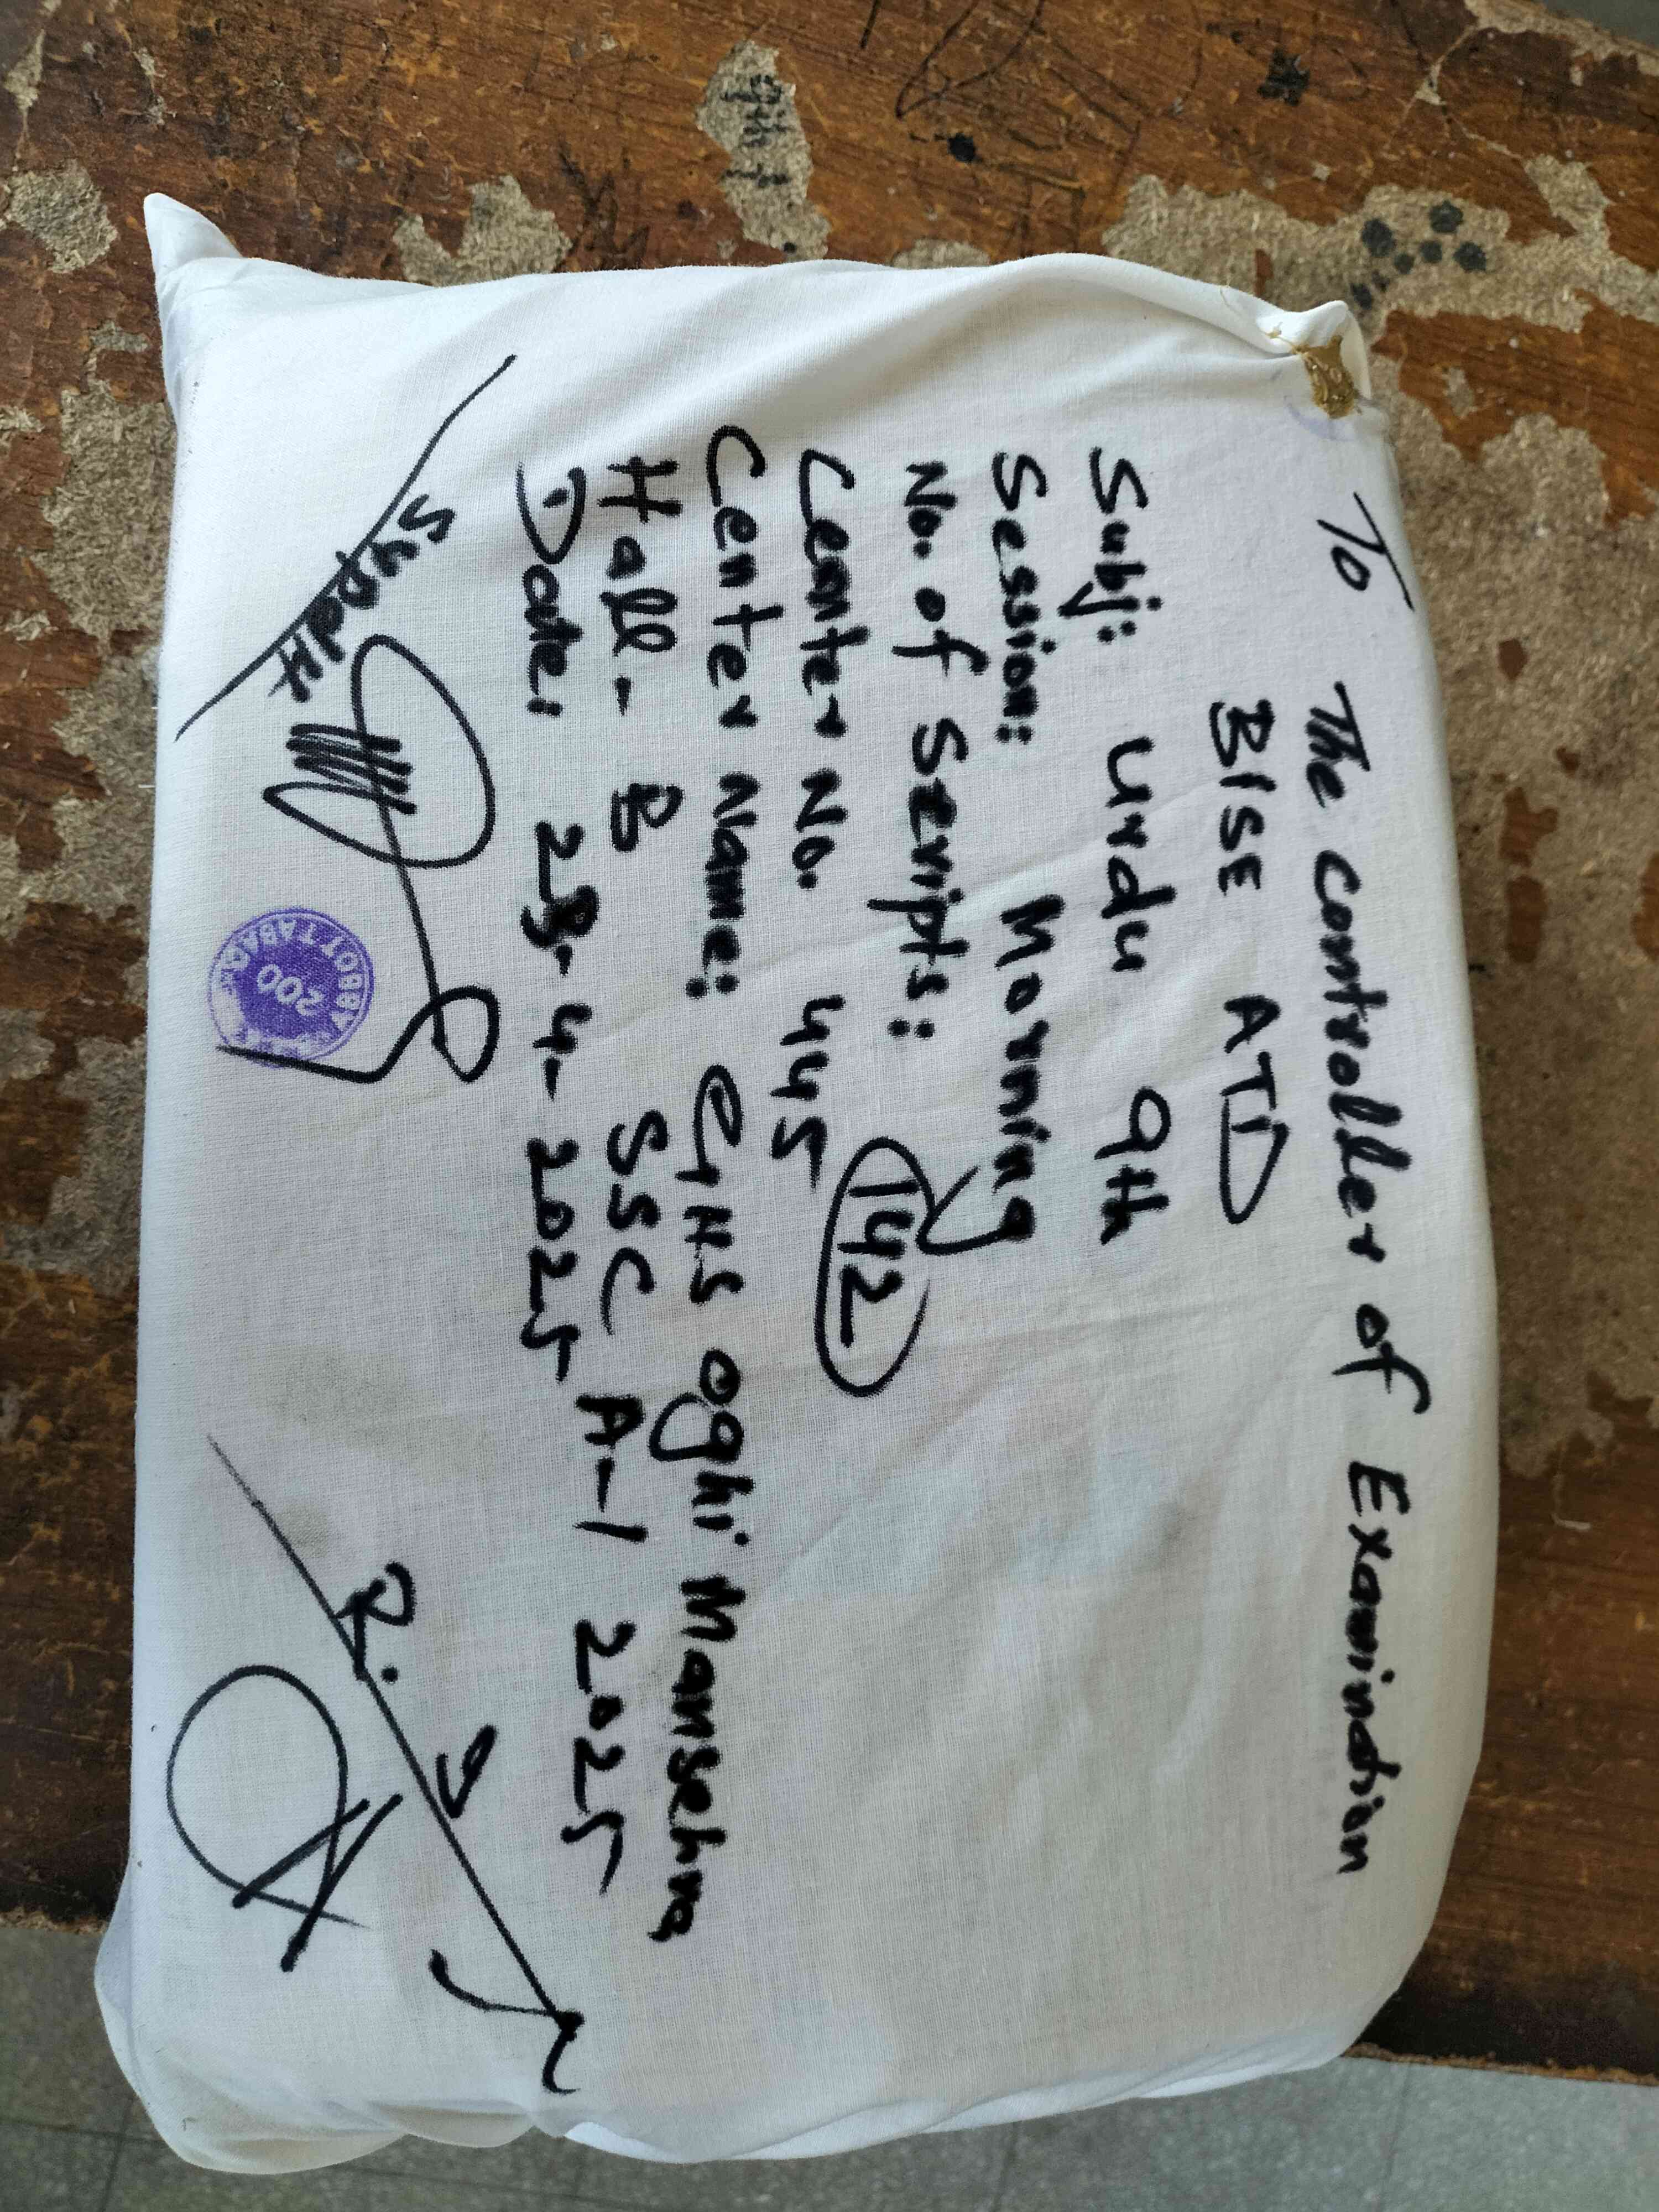 To The Controller of Examination
BISE ATD
Subj: Urdu 9th
Session: Morning
No. of Scripts: 142
Center No. 445
Center Name: GHS Oghi Mansehra
Hall - B SSC A-1 2025
Date: 28-4-2025
Supdtt
R.I
ABBOTTABAD
200